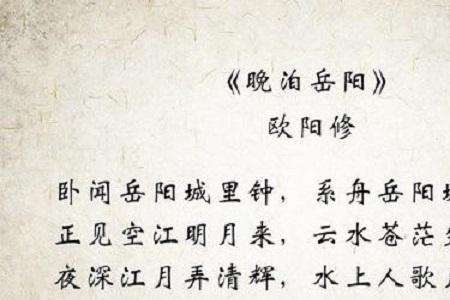 《晚泊岳阳》
欧阳修
卧闻岳阳城里钟，系舟岳阳
正见空江明月来，云水苍茫
夜深江月弄清辉，水上人歌